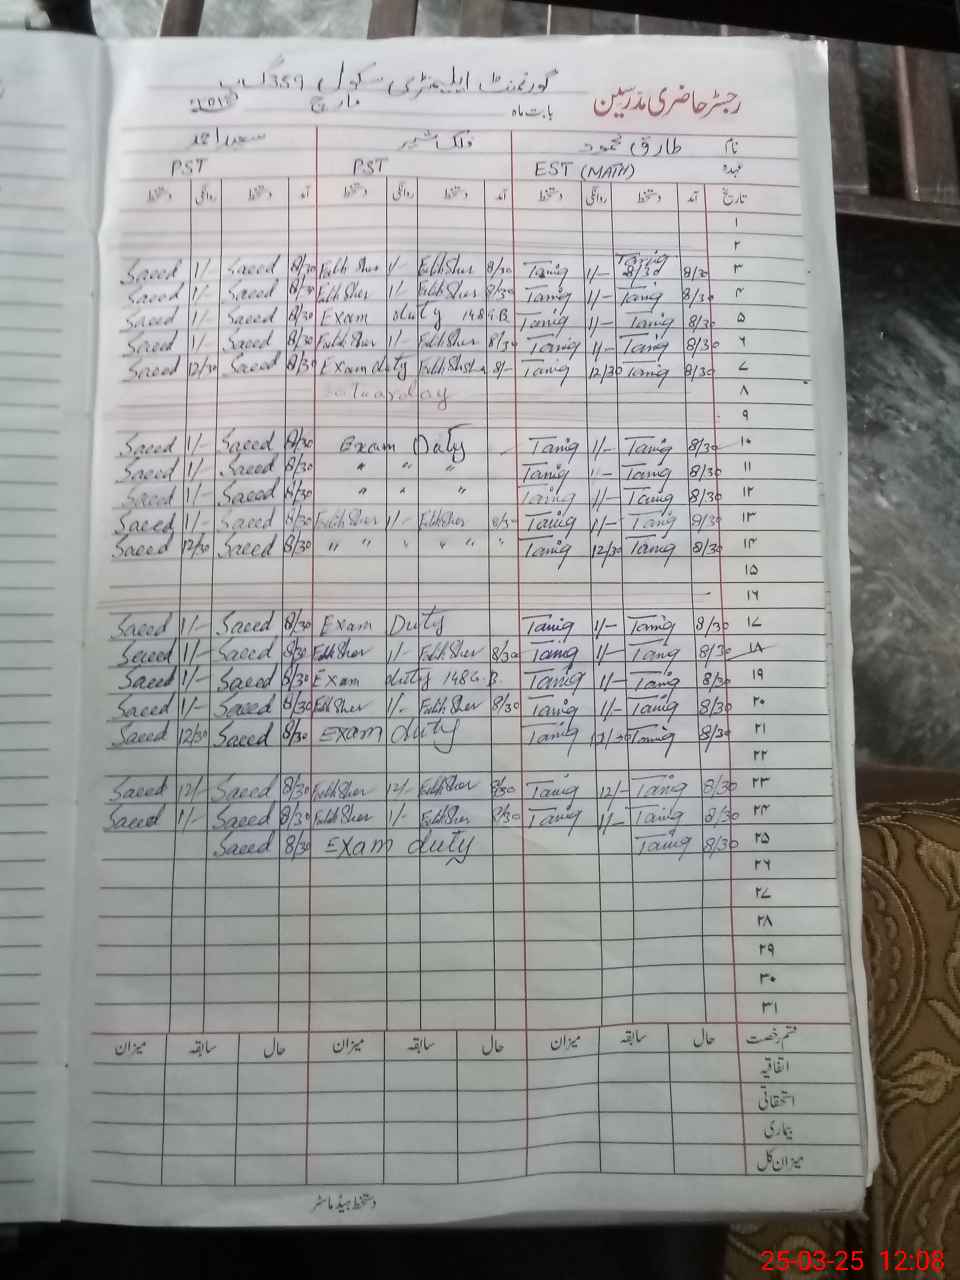 رجسٹر حاضری مدرسین گورنمنٹ ایلیمنٹری سکول 359 گ ب
بابت ماہ مارچ
نام طارق محمود فلک شیر سعید احمد
عہدہ EST (MATH) PST PST
تاریخ آمد دستخط روانگی دستخط آمد دستخط روانگی دستخط آمد دستخط روانگی دستخط
۱
۲
۳ 8/30 Tariq 8/30 1/- Tariq 8/30 Falk Sher 1/- Falk Sher 8/30 Saeed 1/- Saeed
۴ 8/30 Tariq 1/- Tariq 8/30 Falk Sher 1/- Falk Sher 8/30 Saeed 1/- Saeed
۵ 8/30 Tariq 1/- Tariq Exam duty 148 G.B 8/30 Saeed 1/- Saeed
۶ 8/30 Tariq 1/- Tariq 8/30 Falk Sher 1/- Falk Sher 8/30 Saeed 1/- Saeed
۷ 8/30 Tariq 12/30 Tariq 8/- Falk Sher Exam duty 8/30 Saeed 12/30 Saeed
۸ Saturday
۹
۱۰ 8/30 Tariq 1/- Tariq Exam Duty 8/30 Saeed 1/- Saeed
۱۱ 8/30 Tariq 1/- Tariq " " " 8/30 Saeed 1/- Saeed
۱۲ 8/30 Tariq 1/- Tariq " " " 8/30 Saeed 1/- Saeed
۱۳ 8/30 Tariq 1/- Tariq 8/30 Falk Sher 1/- Falk Sher 8/30 Saeed 1/- Saeed
۱۴ 8/30 Tariq 12/30 Tariq " " " " " " 8/30 Saeed 12/30 Saeed
۱۵
۱۶
۱۷ 8/30 Tariq 1/- Tariq Exam Duty 8/30 Saeed 1/- Saeed
۱۸ 8/30 Tariq 1/- Tariq 8/30 Falk Sher 1/- Falk Sher 8/30 Saeed 1/- Saeed
۱۹ 8/30 Tariq 1/- Tariq Exam duty 148 G.B. 8/30 Saeed 1/- Saeed
۲۰ 8/30 Tariq 1/- Tariq 8/30 Falk Sher 1/- Falk Sher 8/30 Saeed 1/- Saeed
۲۱ 8/30 Tariq 12/30 Tariq Exam duty 8/30 Saeed 12/30 Saeed
۲۲
۲۳ 8/30 Tariq 12/- Tariq 8/30 Falk Sher 12/- Falk Sher 8/30 Saeed 12/- Saeed
۲۴ 8/30 Tariq 1/- Tariq 8/30 Falk Sher 1/- Falk Sher 8/30 Saeed 1/- Saeed
۲۵ 8/30 Tariq Exam duty 8/30 Saeed
۲۶
۲۷
۲۸
۲۹
۳۰
۳۱
قسم رخصت حال سابقہ میزان حال سابقہ میزان حال سابقہ میزان
اتفاقیہ
استحقاقی
بیماری
میزان کل
دستخط ہیڈ ماسٹر
25-03-25 12:08